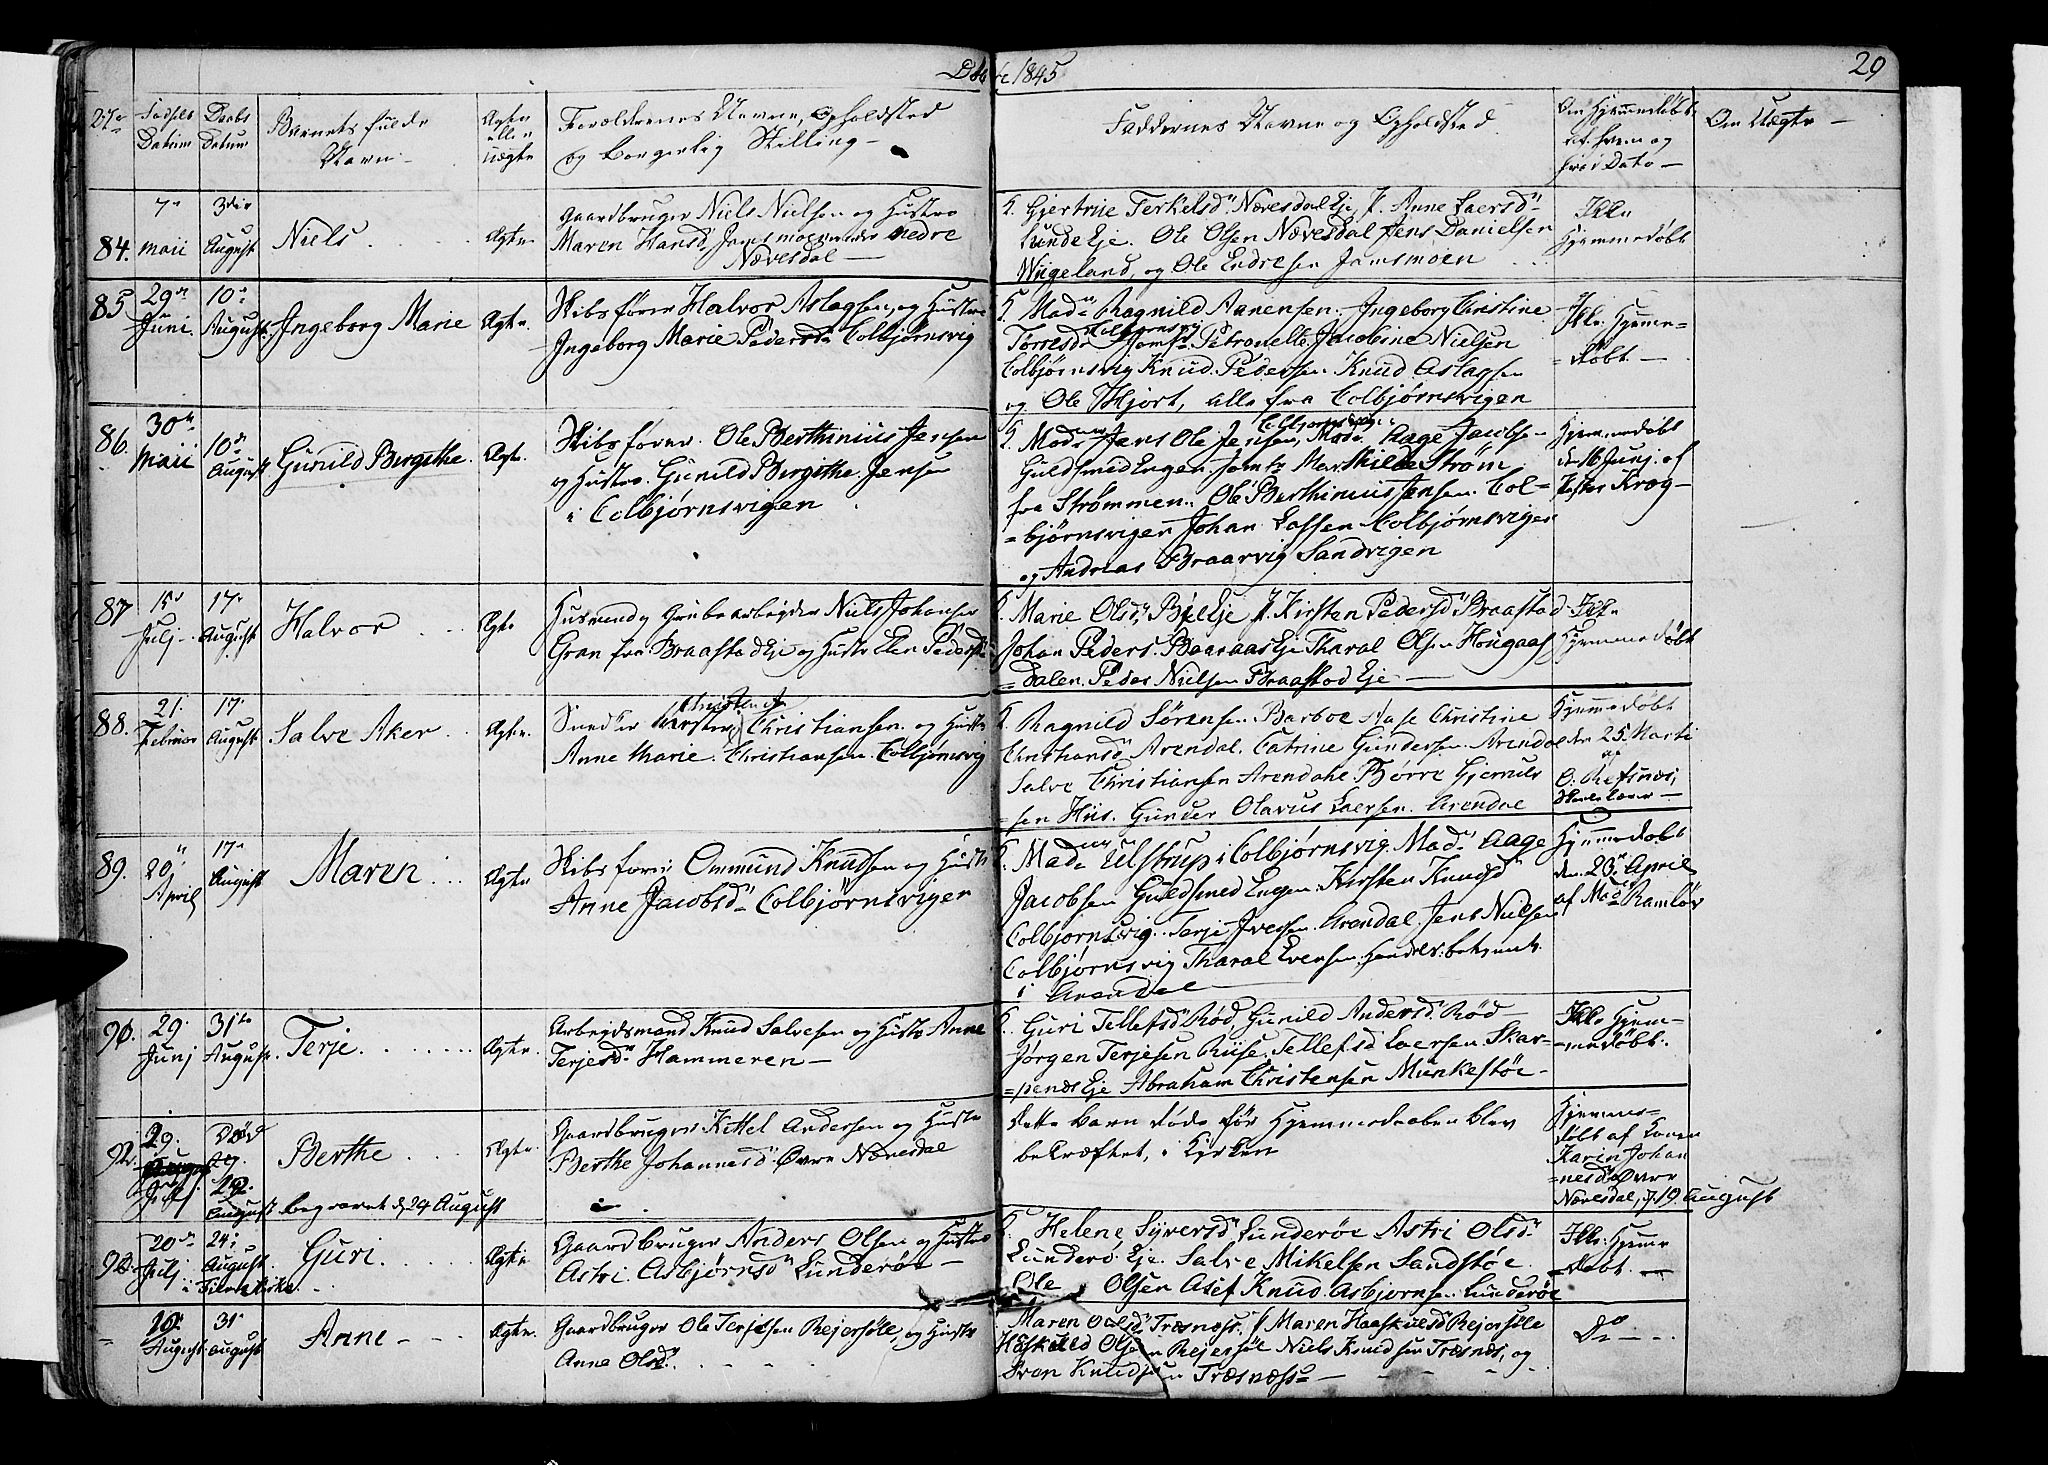 Døbte 1845
29
No
Fødsels Datum
Daabs Datum
Barnets fulde Navn
Ægte eller uægte
Forældrenes Navne, Opholdsted
og borgerlig Stilling
Faddernes Navne og Opholdsted
Om Hjemmedøbt
af hvem og
hvis Dato
Om Uægte
84.
7de
Maii
3die
August
Niels
Ægte
Gaardbruger Niels Nielsen og Hustro
Maren Hansd. nedre
Nævesdal
Gjertrue Terkelsd. Nævesdal Eje, J. Anne Laersd.
Lunde Eje. Ole Olsen Nævesdal Jens Danielsen
Wigeland, og Ole Endresen Jomsmoen
Ikke
Hjemmedøbt
85
29de
Juni
10de
August
Ingeborg Marie
Ægte
Skibsfører Halvor Aslagsen, og Hustro
Ingeborg Marie Pedersd. Colbjørnsvig
Mad. Ragnild Aanensen. Ingeborg Christine
Torresd. Colbjørnsvig Jomf. Petronelle Jacobine Nielsen
Colbjørnsvig Knud Pedersen. Knud Aslagsen
og Ole Hjort, alle fra Colbjørnsvigen
Ikke Hjemme=
=døbt
86.
30te
Maii
10de
August
Gunild Birgithe
Ægte
Skibsfører Ole Berthinius Jensen
og Hustro Gunild Birgithe Jensen
i Colbjørnsvigen
Mad. Jens Ole Jensen, Colbjørnsvigen Mad. Aage Jacobsen
Guldsmed Engen. Jomfr Marthilde Strøm
fra Strømmen. Ole Berthinius Jensen. Col=
=bjørnsvigen Johan Lassen Colbjørnsvigen
og Andreas Braarvig Sandvigen
Hjemmedøbt
den 16 Junj af
Præster Krog
87
15de
Julj
17de
August
Halvor
Ægte
Husmand og Grubearbejder Niels Johansen
Gran fra Braastad Eje og Hustro Elen Pedersd.
Marie Olsd. Bjel Eje J. Kirsten Pedersd. Braastad
Johan Peders. Eje Tharal Olsen Hougaas
=dalen. Peder Nielsen Braastad Eje
Ikke
Hjemmedøbt
88.
21.
Februar
17.
August
Salve Aker
Ægte
Christen A
Christiansen og Hustro
Anne Marie Christiansen Colbjørnsvig
Ragnild Sørensen Barboe Nase Christine
Christiansd. Arendal. Catrine Gundersen. Arendal
Salve Christiansen Arendahl Børre Gjeruls
sen Hiis. Gunder Olavus Laersen. Arendal
Hjemmedøbt
den 25. Marti
af
O. Refsnæs,
Skolelærer
89.
20de
April
17de
August
Maren
Ægte
Skibsfører Ommund Knudsen og Hustro
Anne Jacobsd. Colbjørnsvigen
Mad. Ulstrup i Colbjørnsvig. Mad. Aage
Jacobsen Guldsmed Engen. Kirsten Knudsd.
Colbjørnsvig. Terje Iversen. Arendal. Jens Nielsen
Colbjørnsvig Tharal Evensen. Handelsbetjent
i Arendal
Hjemmedøbt
den 23. April
af Mad. Ramløv
90.
29.
Junj
31te
August
Terje
Ægte
Arbejdsmand Knud Salvesen og Hustro Anne
Terjesd. Hammeren
Guri Tellefsd. Rød, Gunild Andersd. Rød
Jørgen Terjesen Riise. Tellef Laersen Skar=
=penæs Eje Abraham Christensen Munkestøe
Ikke Hjem=
=medøbt.
92.
29.
Julj
Død
19.
August
Berthe
begravet d. 24 August
Ægte
Gaardbruger Kittel Andersen og Hustro
Berthe Johannesd. Øvre Nævesdal
Dette Barn døde før Hjemmedaaben blev
bekræftet, i Kirken
Hjemme=
døbt af Konen
Karin Johan
nesd. Øvre
Nævesdal, d. 19 August
93.
20de
Julj
24de
August
Guri
Ægte
Gaardbruger Anders Olsen og Hustro
Astri Asbjørnsd. Lunderøe
Helene Syversd. Lunderøe Astri Olsd.
Lunderø Eje Salve Mikelsen Sandstøe.
Ole Olsen Asef Knud Asbjørnsen Lunderøe
Ikke Hjemme
=døbt
10de
August
31
August
Anne
Ægte
Gaardbruger Ole Terjesen Rejersøle, og Hustro
Anne Olsd.
Maren Olsd. Træsnæs. J. Maren Haaskulsd. Rejersøle
Haskuld Olsen Rejersøl Niels Knudsen Træsnæs, og
Sven Knudsen Træsnæss
Do